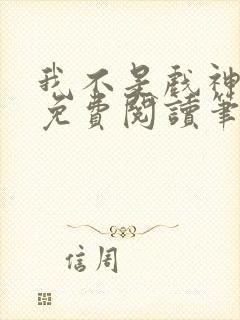 我不是戲神
免費閱讀筆
信周